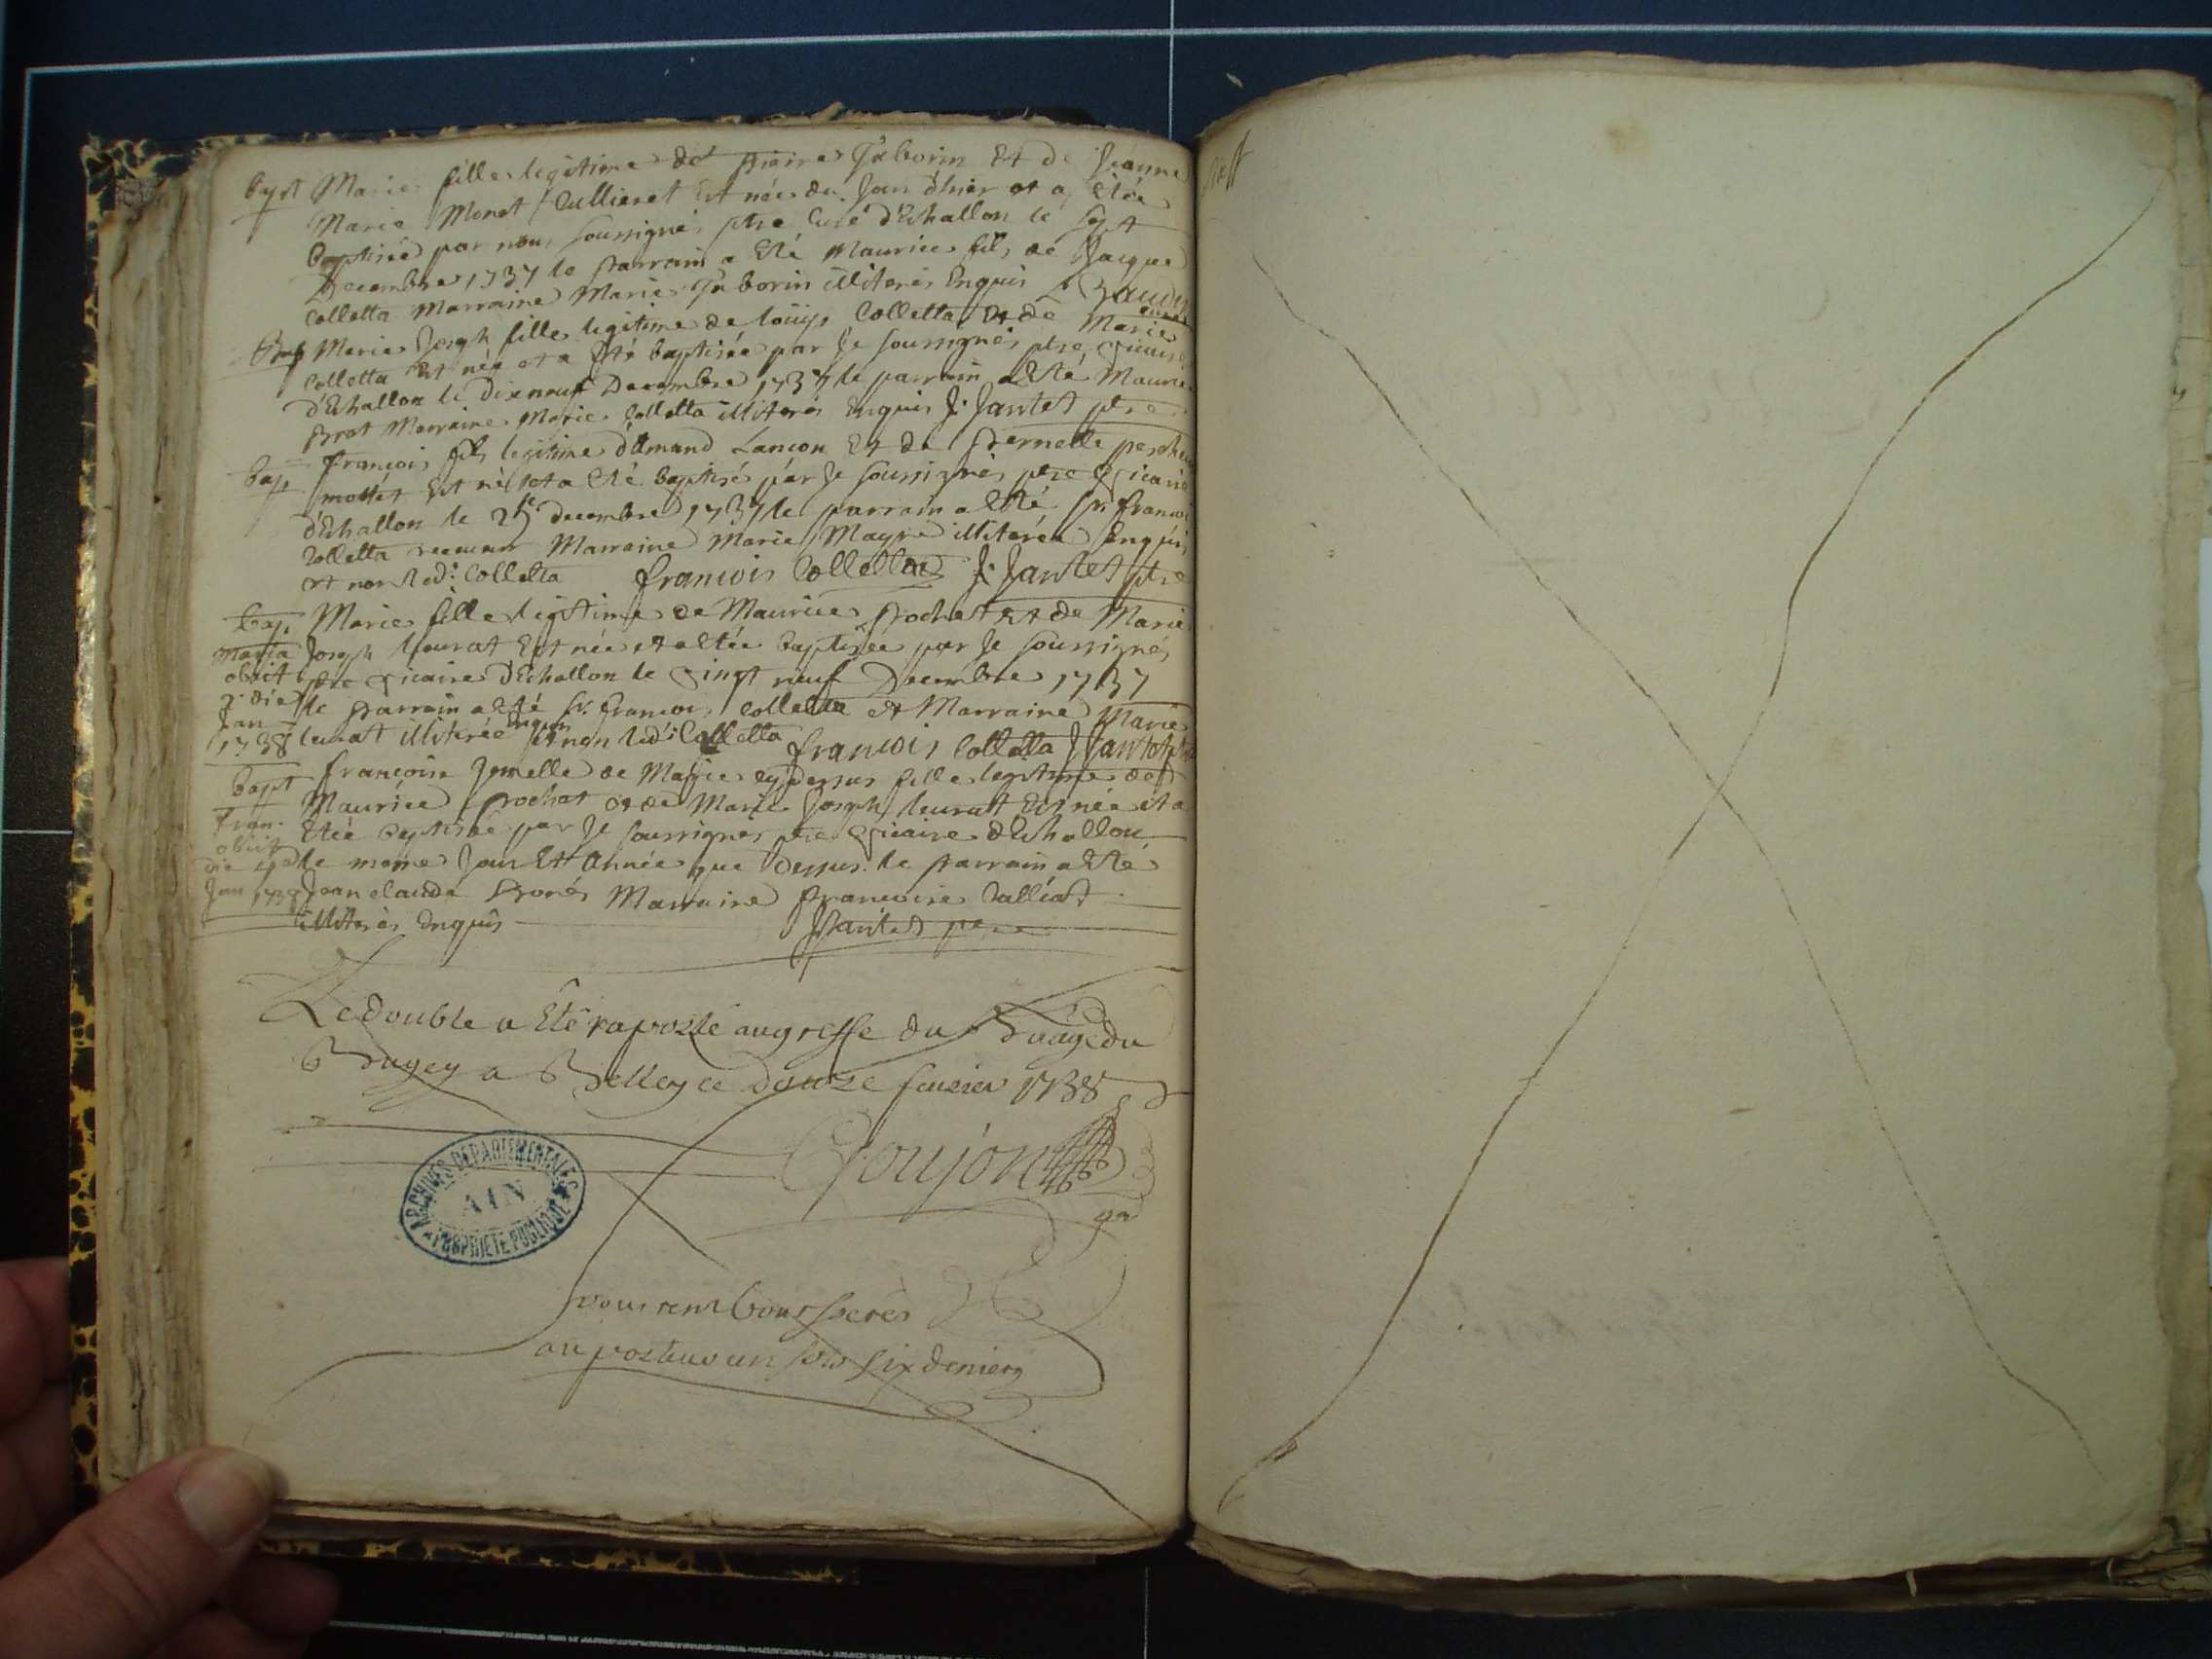 Bapt Marie fille legitime de pierre Taborin Et de Jeanne
Marie Monet Cullieret Est née du Jour d'hier et a Etée
Baptisée par nous soussignés ptre Curé d'Echallon le sept
Decembre 1737 le parrain a Eté Maurice fils de Jacque
Colletta Marraine Marie Taborin illiterés Enquis
Bap Marie Joseph fille legitime de louys Colletta Et de Marie
Colletta Est née et a Eté baptisée par Je soussignés ptre vicaire
d'Echallon le Dixneuf Decembre 1737 le parrain a Eté Maurice
Brot Marraine Marie Colletta illiterés Enquis J: Jantet ptre
Bap françois fils legitime d'Emand Lançon Et de pernette
mottet Est né et a Eté baptisé par Je soussignés ptre vicaire
d'Echallon le 25e decembre 1737 le parrain a Eté Sr. francois
Colletta Marraine Marie Mayre illiterée Enquis
et non led: Colletta francois Colletta J: Jantet ptre
Bap. Marie fille legitime de Maurice prochet Et de Marie
Maria Joseph leurat Est née et a Etée baptisée par Je soussignés
obiit ptre vicaire d'Echallon le vingt neuf Decembre 1737
3a die le parrain a Eté Sr. francois Colletta et Marraine Marie
Jan leurat illiterée Enquis et non led: Colletta francois Colletta J Jantet ptre
1738
Bapt françoise Jemelle de Marie cy dessus fille legitime de
Maurice prochet et de Marie Joseph leurat Est née et a
fran. Etée baptisée par Je soussignés ptre vicaire d'Echallon
obiit
die 4a le meme Jour Et Année que Dessus. le parrain a Eté
Jan 1738 Jean claude Marraine francoise
illiterés Enquis Jantet ptre
Le double a Eté raporté au greffe du Buage du
Bugey a Belley ce douze fevrier 1738
Goujon
gr
vous rembourserés
au porteur un sols six deniers
ARCHIVES DEPARTEMENTALES
AIN
PROPRIETE PUBLIQUE